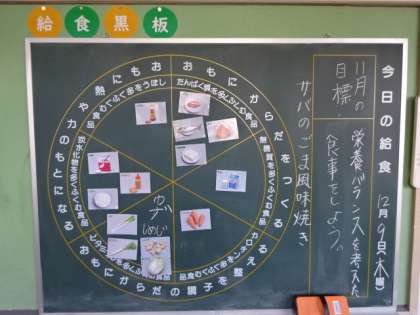 給食黒板
今日の給食
12月9日(木曜)
11月の目標
栄養バランスを考えた
食事をしよう。
サバのごま風味焼き
おもにからだをつくる
たんぱく質を多くふくむ食品
無機質を多くふくむ食品
おもにからだの調子を整える
カロテンを多くふくむ食品
ビタミン
おもに熱や力のもとになる
炭水化物を多くふくむ食品
脂肪を多くふくむ食品
ゆず
しめじ